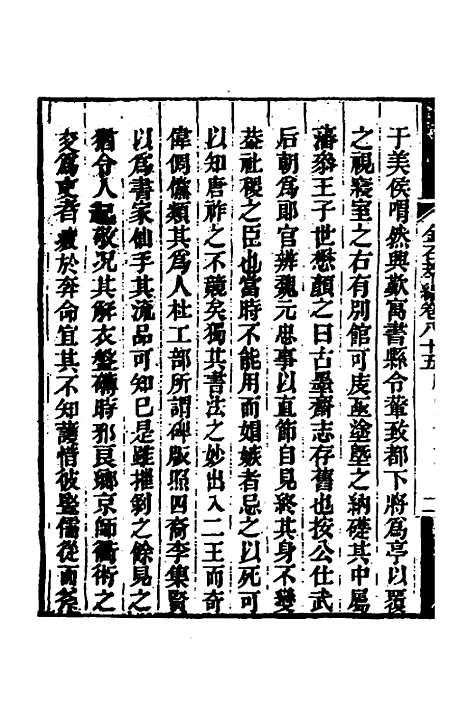 金石萃編卷八十五
二
于美侯喟然興歎寓書縣令輦致都下將爲亭以覆
之視寢室之右有別館可庋亟塗墍之納礎其中屬
藩參王子世懋顏之曰古墨齋志存舊也按公仕武
后朝爲郎官辨魏元忠事以直節自見終其身不變
葢社稷之臣也當時不能用而媢嫉者忌之以死可
以知唐祚之不競矣獨其書法之妙出入二王而奇
偉倜儻類其爲人杜工部所謂碑版照四裔李集賢
以爲書家仙手其流品可知已是雖摧剝之餘見之
猶令人起敬况其解衣盤礴時邪良鄉京師衝術之
交爲吏者疲於奔命宜其不知護惜彼豎儒從而斧